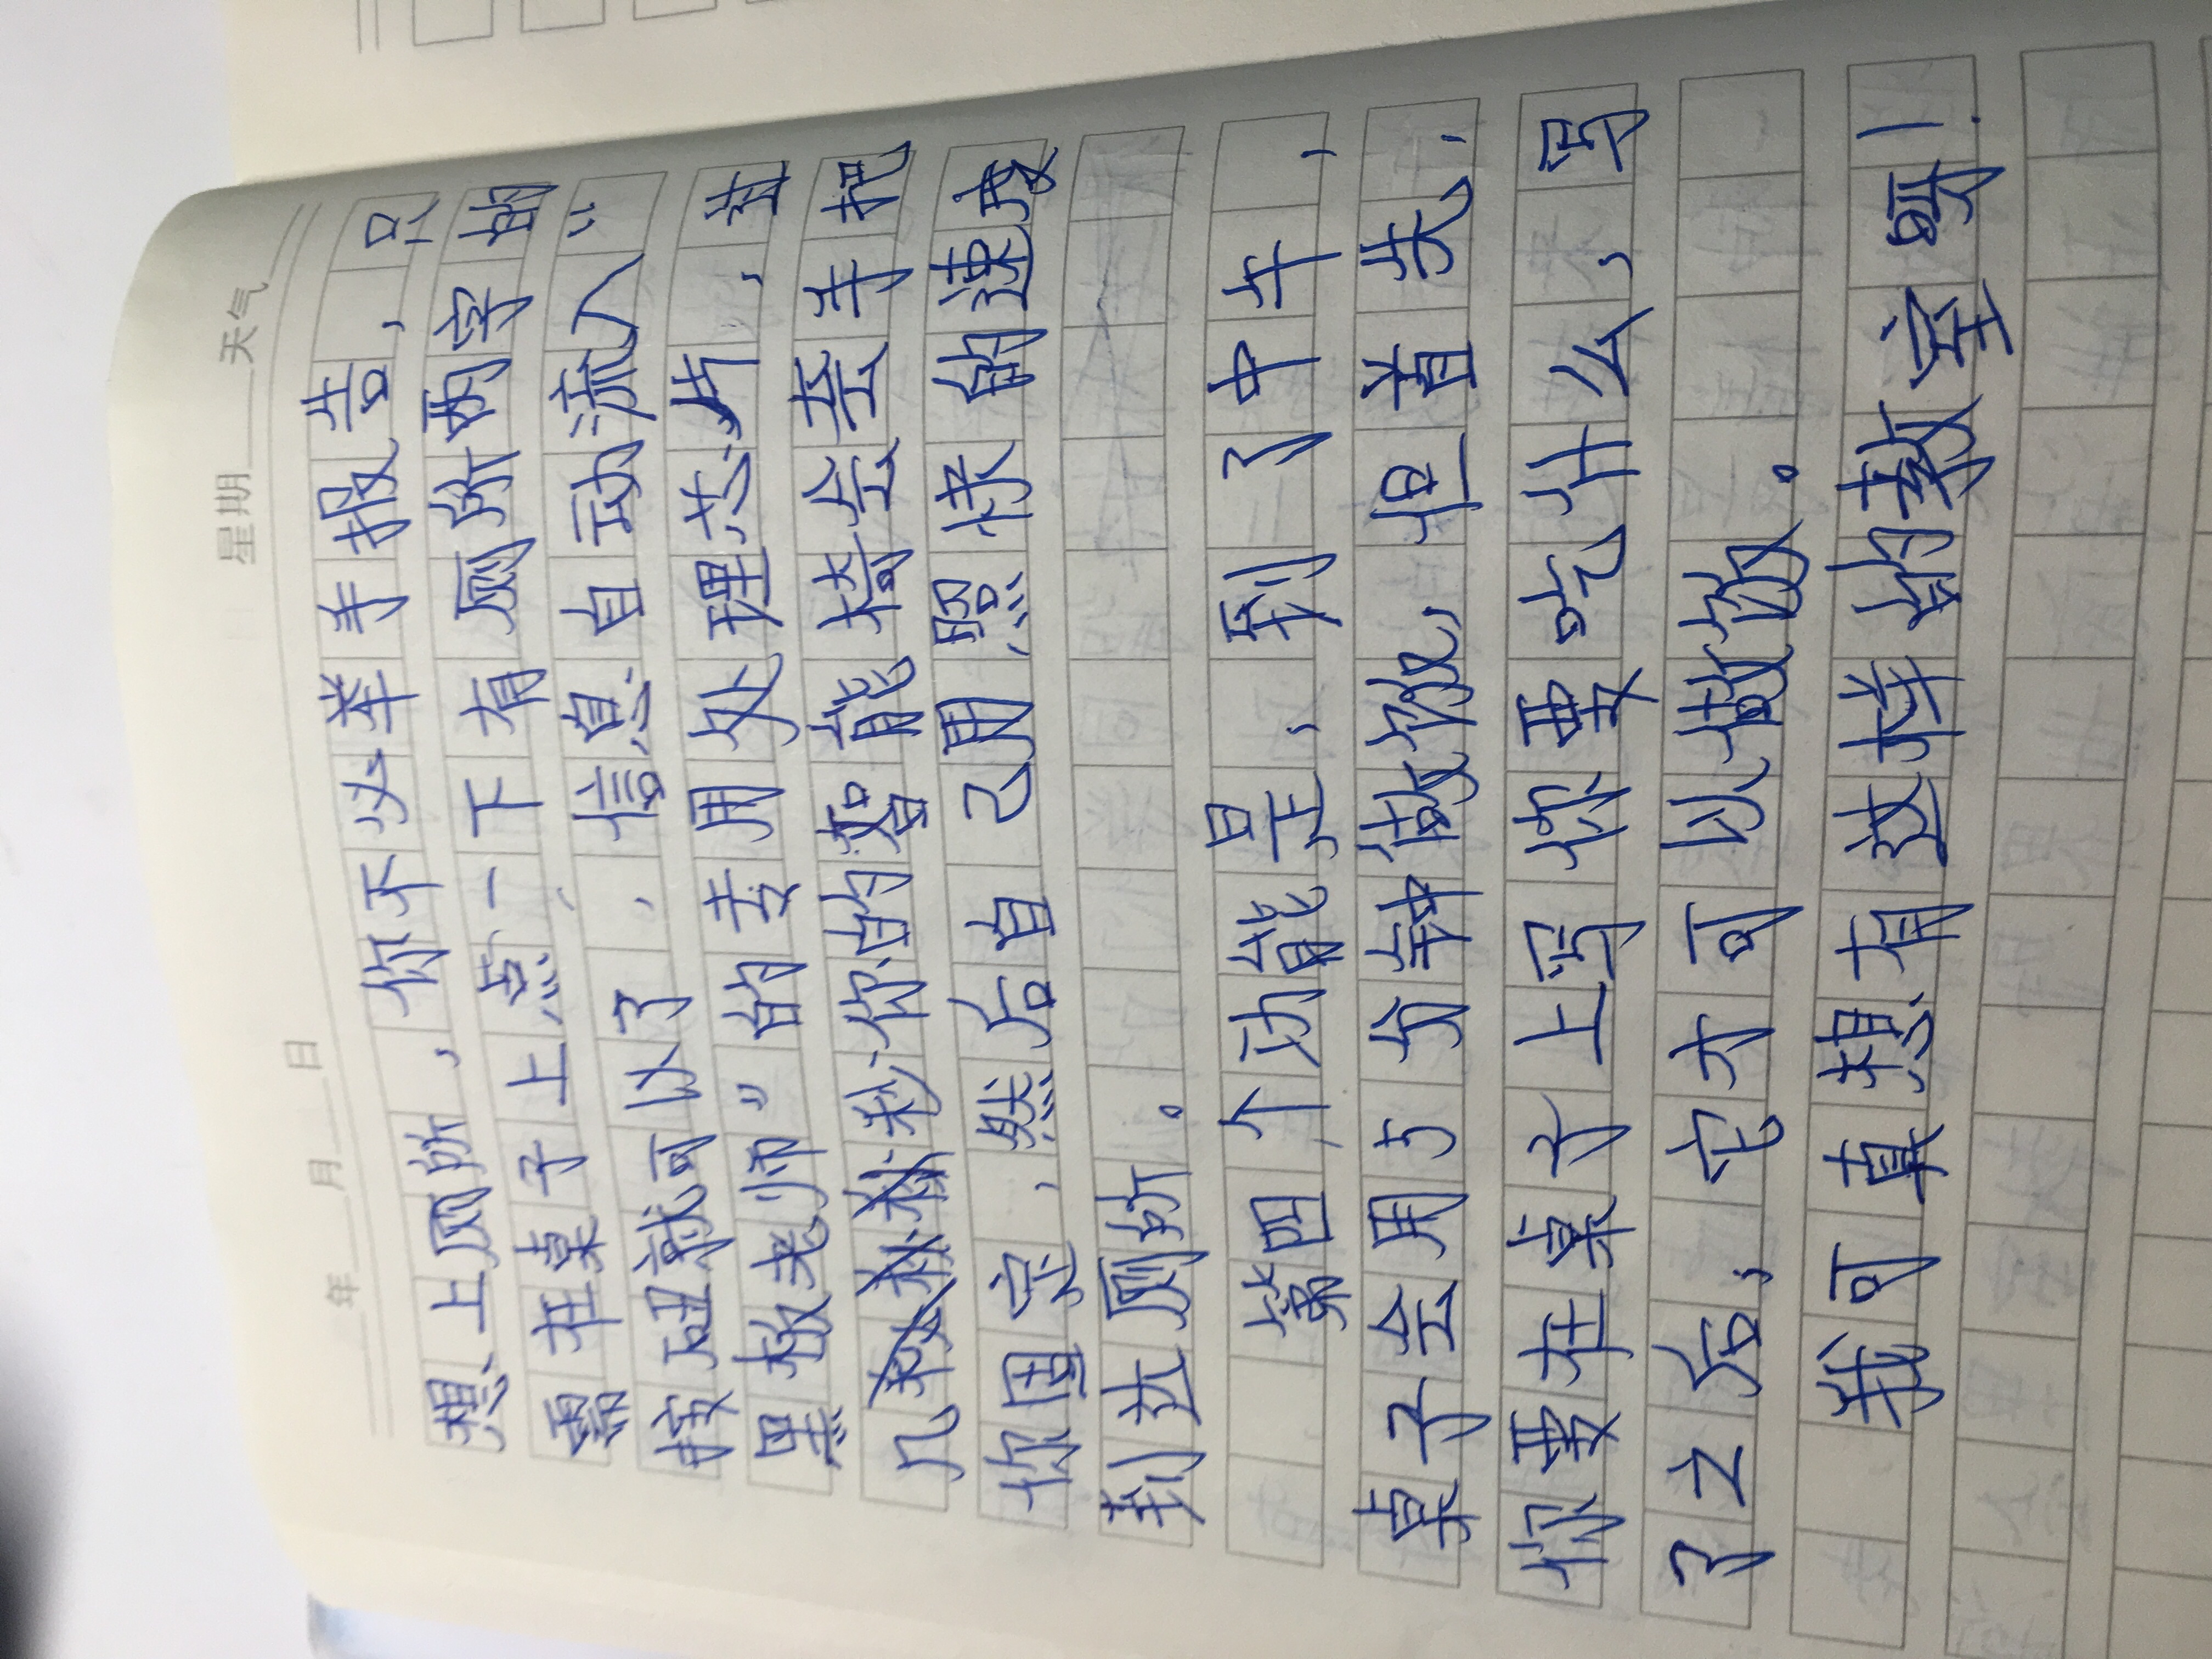 年 月 日 星期 天气
想上厕所，你不必举手报告，只
需在桌子上点一下有厕所两字的
按钮就可以了，信息自动流入“
黑板老师”的专用处理芯片，并
几秒你的智能椅会车把
你固定，然后自己用照快的速度
到达厕所。
第四个功能是，到了中午，
桌子会用5分钟做饭，但首先，
你要在桌子上写你要吃什么，写
了之后，它才可以做饭。
我可真想有这样的教室啊！